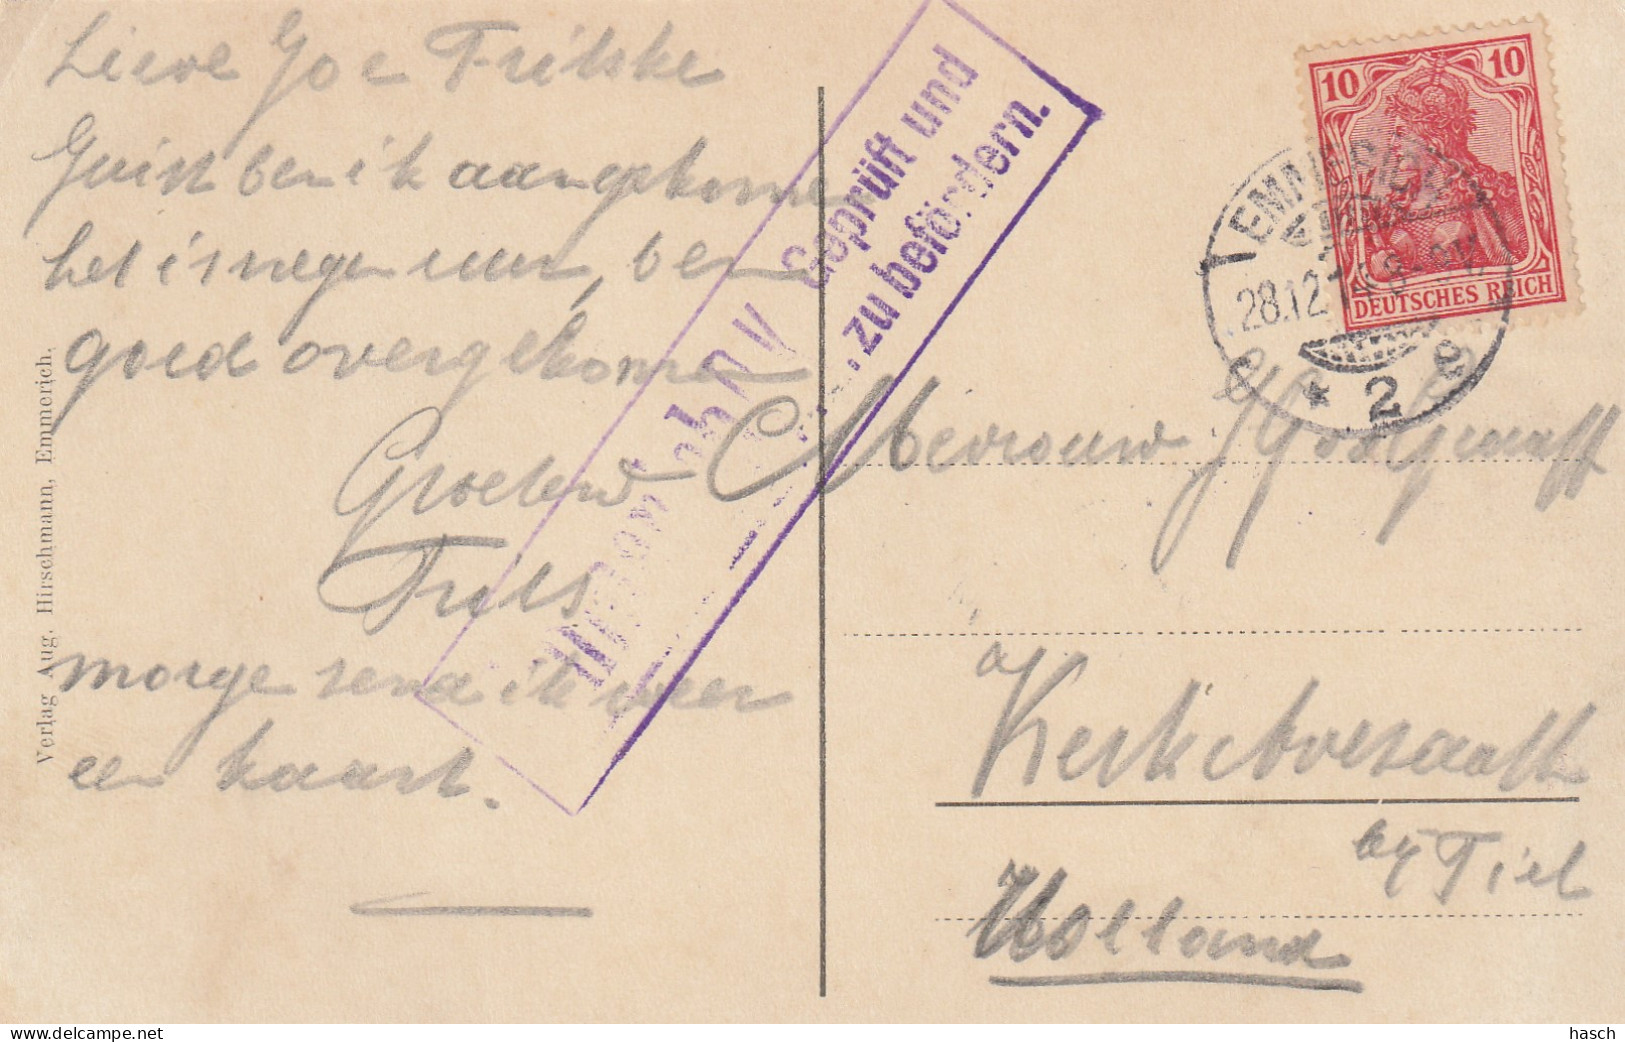 Lieve Joe Fritske
Juist ben ik aangekomen
het is negen uur, ben
goed overgekomen
Groeten
Frits
morge send ik weer
een kaart.
Verlag Aug. Hirschmann, Emmerich.
Geprüft und
zu befördern.
10 10
DEUTSCHES REICH
EMMERICH
28.12.14 8-9V.
* 2 e
Mevrouw
Kerk
by Tiel
Holland
hasch